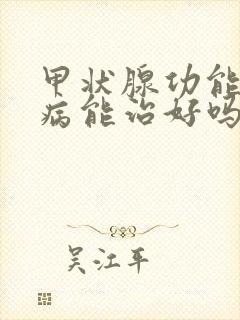 甲状腺功能
病能治好吗
吴江平